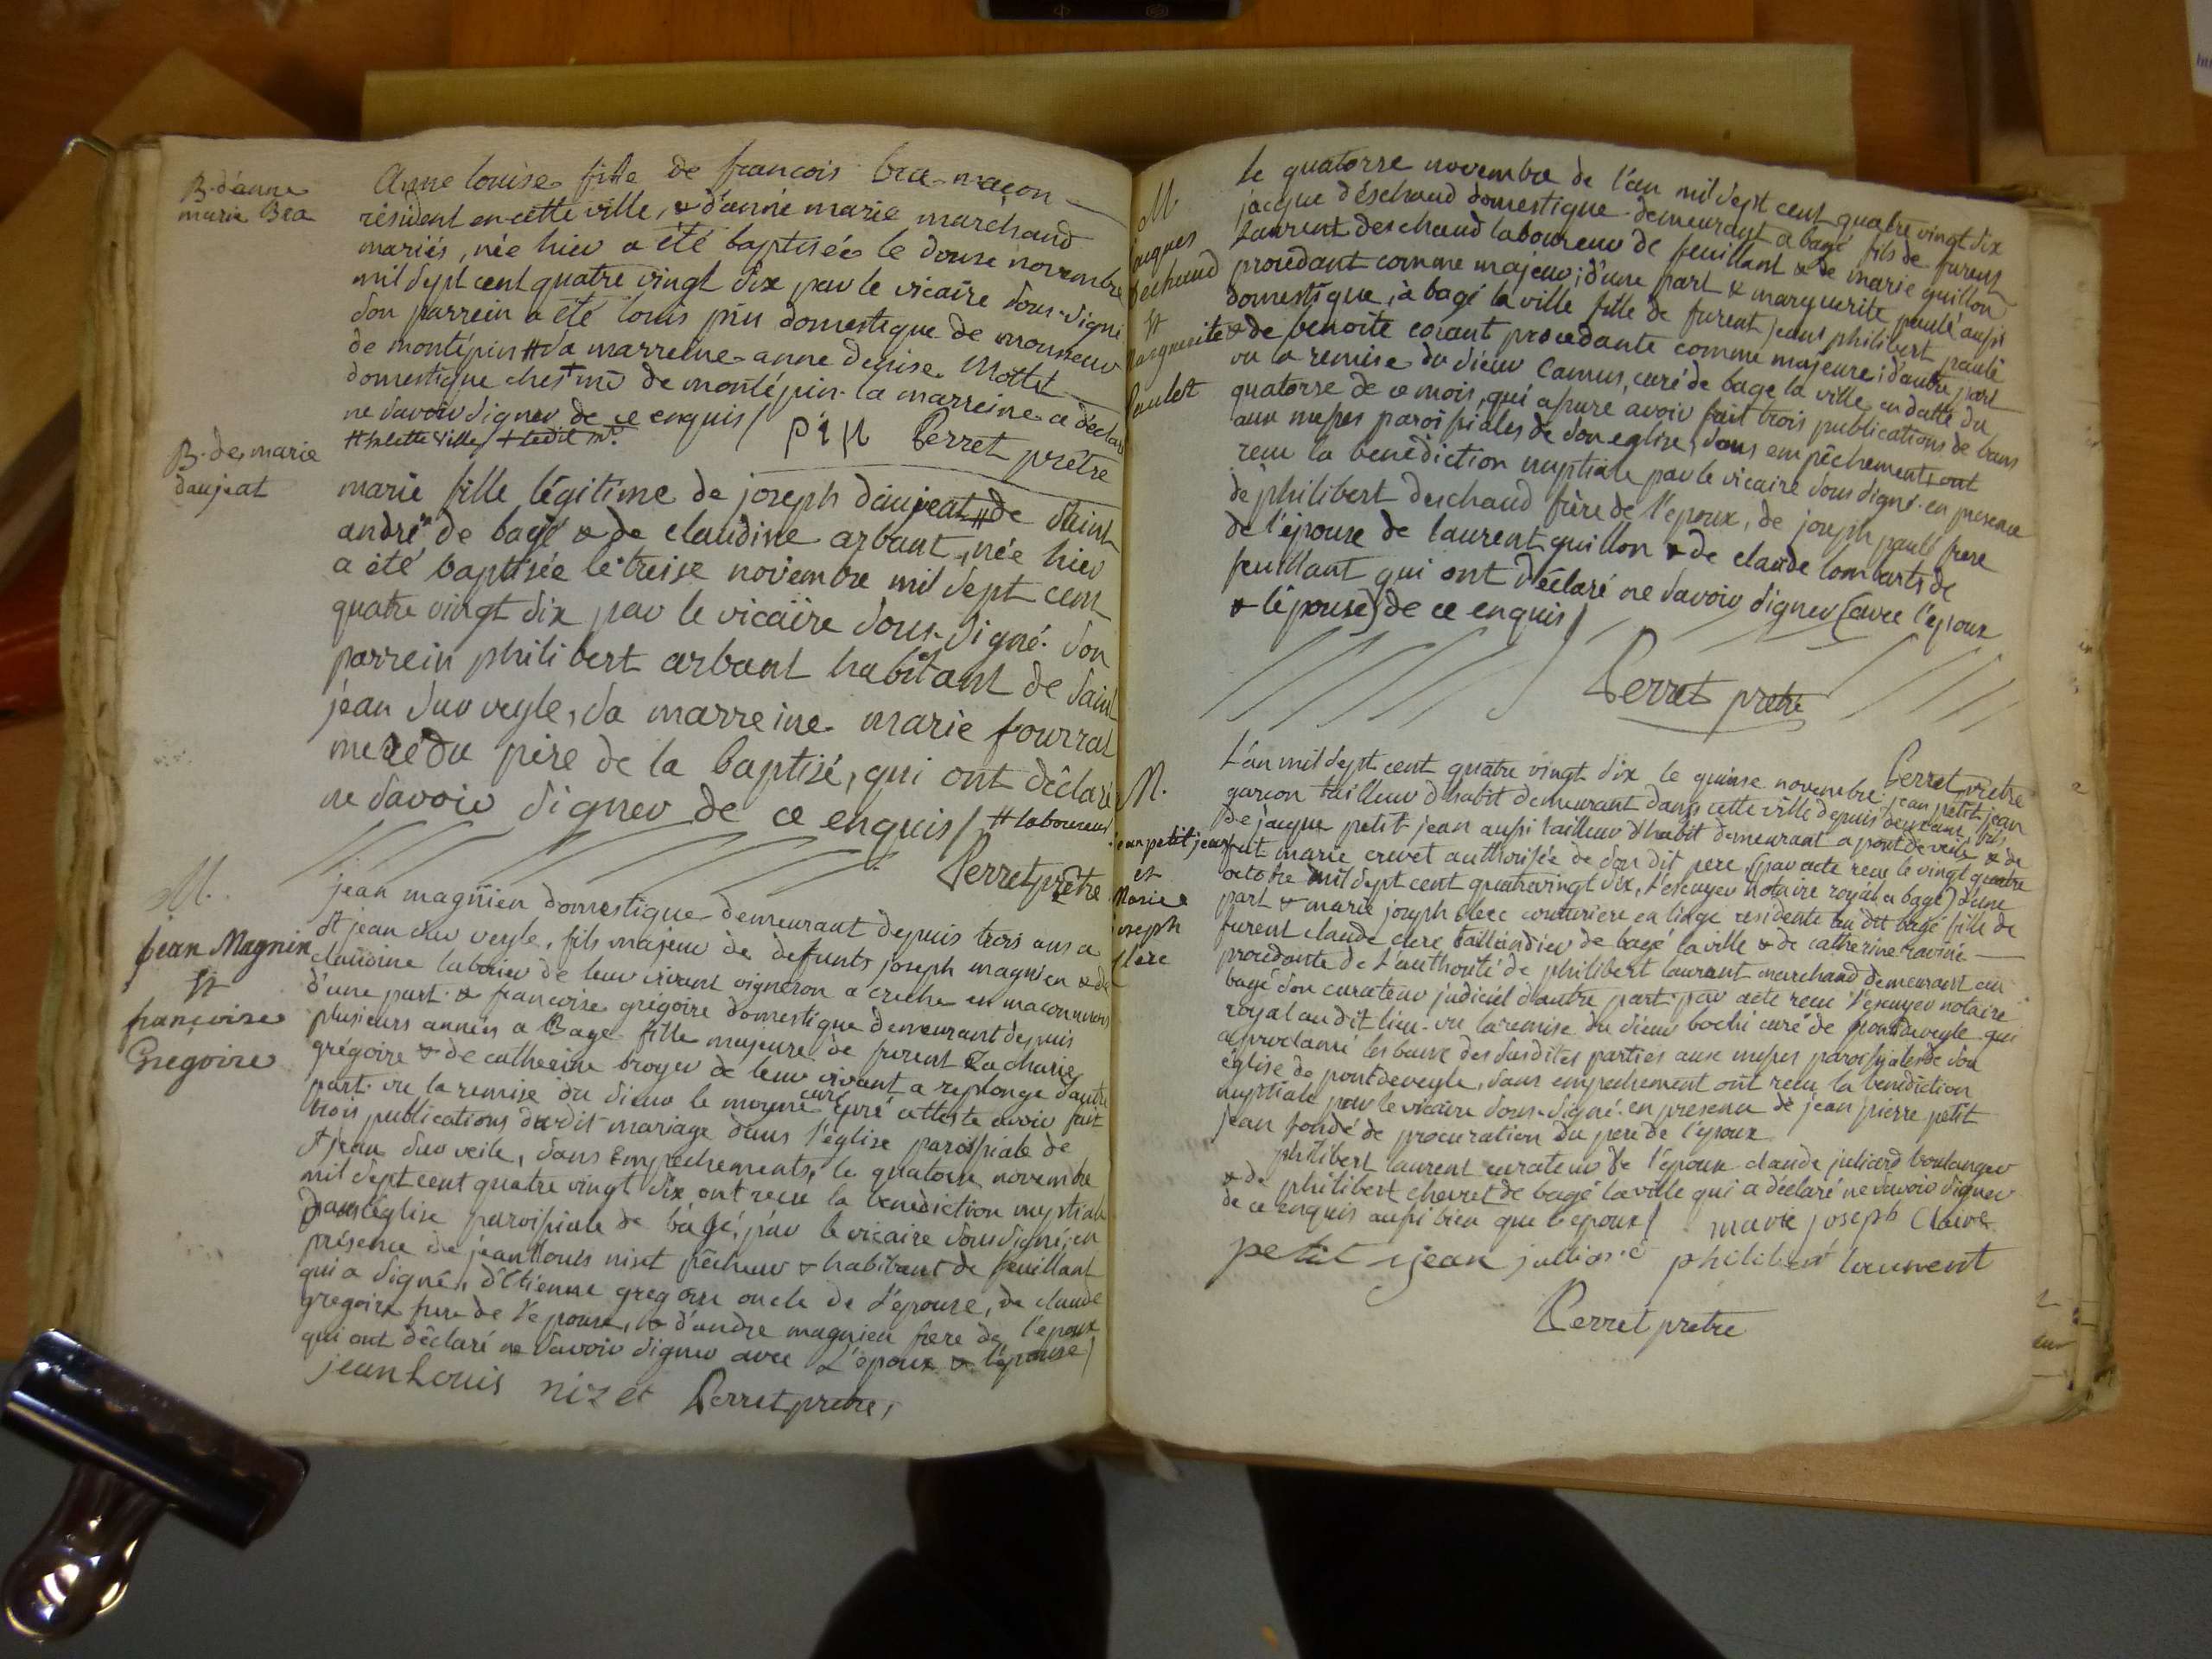 B. d'anne
marie Bra
Anne louise fille de francois bra maçon
résident en cette ville, & d'anne marie marchand
mariés, née hier a été baptisée le douse novembre
mil sept cent quatre vingt dix par le vicaire sous-signé
son parrein a été louis pin domestique de monsieur
de montépin # sa marreine anne denise mottet
domestique ches + mr de montépin. la marreine a déclaré
ne savoir signer de ce enquis /
# en cette ville / + ledit mr
pin Perret prêtre
B. de marie
daujeat
marie fille légitime de joseph daujeat # de saint
andré de bagé & de claudine arbant, née hier
a été baptisée le treise novembre mil sept cent
quatre vingt dix par le vicaire sous-signé. son
parrein philibert arbant habitant de saint
jean sur veyle, sa marreine marie fourrat
mere du pere de la baptisé, qui ont déclaré
ne savoir signer de ce enquis / # laboureur
Perret prêtre
M.
jean Magnin
et
françoise
Gregoire
jean magnien domestique demeurant depuis trois ans a
st jean sur veyle, fils majeur de defunts joseph magnien & de
claudine laborier de leur vivant vigneron a creche en maconnois
d'une part. & francoise gregoire domestique demeurant depuis
plusieurs années a Bagé fille majeure de furent Zacharie
grégoire & de catherine broyer de leur vivant a replonge d'autre
part. vu la remise du sieur le moyne curé qui atteste avoir fait
trois publications dudit mariage dans l'église paroissiale de
st jean sur veile, sans Empechements, le quatorse novembre
mil sept cent quatre vingt dix ont recu la benediction nuptiale
dans l'église paroissiale de bagé, par le vicaire sous signé, en
présence de jean louis niset pêcheur & habitant de feuillant
qui a signé, d'Etienne gregoire oncle de l'epouse, de claude
gregoire frere de l'epouse, & d'andre magnien frere de l'epoux
qui ont déclaré ne savoir signer avec L'époux & l'épouse /
jean Louis nizet Perret prêtre,
M.
jaques
dechaud
et
marguerite
Paulet
le quatorse novembre de l'an mil sept cent quatre vingt dix
jacque deschaud domestique demeurant a bagé fils de furent
Laurent deschaud laboureur de feuillant & de marie guillon
procedant comme majeur; d'une part & marguerite paulé aussi
domestique, à bagé la ville fille de furent jean philibert paulé
& de benoite coiant procedante comme majeure; d'autre part
vu la remise du sieur Camus, curé de bagé la ville en datte du
quatorse de ce mois, qui assure avoir fait trois publications de bans
aux messes paroissiales de son eglise, sans empêchements, ont
recu la benediction nuptiale par le vicaire sous signé. en presence
de philibert deschaud frère de l'epoux, de joseph paulé frere
de l'épouse de laurent guillon & de claude lombarts de
feuillant qui ont déclaré ne savoir signer (avec l'epoux
& l'épouse) de ce enquis /
Perret prêtre
Perret prêtre
M.
jean petit jean
et
Marie
joseph
Clerc
L'an mil sept cent quatre vingt dix le quinse novembre. jean petit jean
garcon tailleur d'habit demeurant dans cette ville depuis deux ans, fils
de jacque petit-jean aussi tailleur d'habit demeurant a pont de veile & de
fut marie crevet authorisée de son dit pere (par acte recu le vingt quatre
octobre mil sept cent quatrevingt dix, L'escuyer notaire royal a bagé) d'une
part & marie joseph clerc couturiere en linge residente au dit bagé fille de
furent claude clerc taillandier de bagé la ville & de catherine raviné
procedante de L'authorité de philibert laurent marchand demeurant au
bagé son curateur judiciel d'autre part. par acte recu L'escuyer notaire
royal au dit lieu. vu la remise du sieur bochi curé de pontdeveyle qui
a proclamé les bans des susdites parties aux messes paroissiales de son
église de pontdeveyle, sans empechement ont recu la benediction
nuptiale par le vicaire sous-signé. en presence de jean pierre petit
jean fondé de procuration du pere de l'époux
philibert laurent curateur de l'epoux claude juliard boulanger
& de philibert chevret de bagé la ville qui a déclaré ne savoir signer
de ce enquis aussi bien que l'époux / marie joseph Claire
petit jean julliard philibert laurent
Perret prêtre